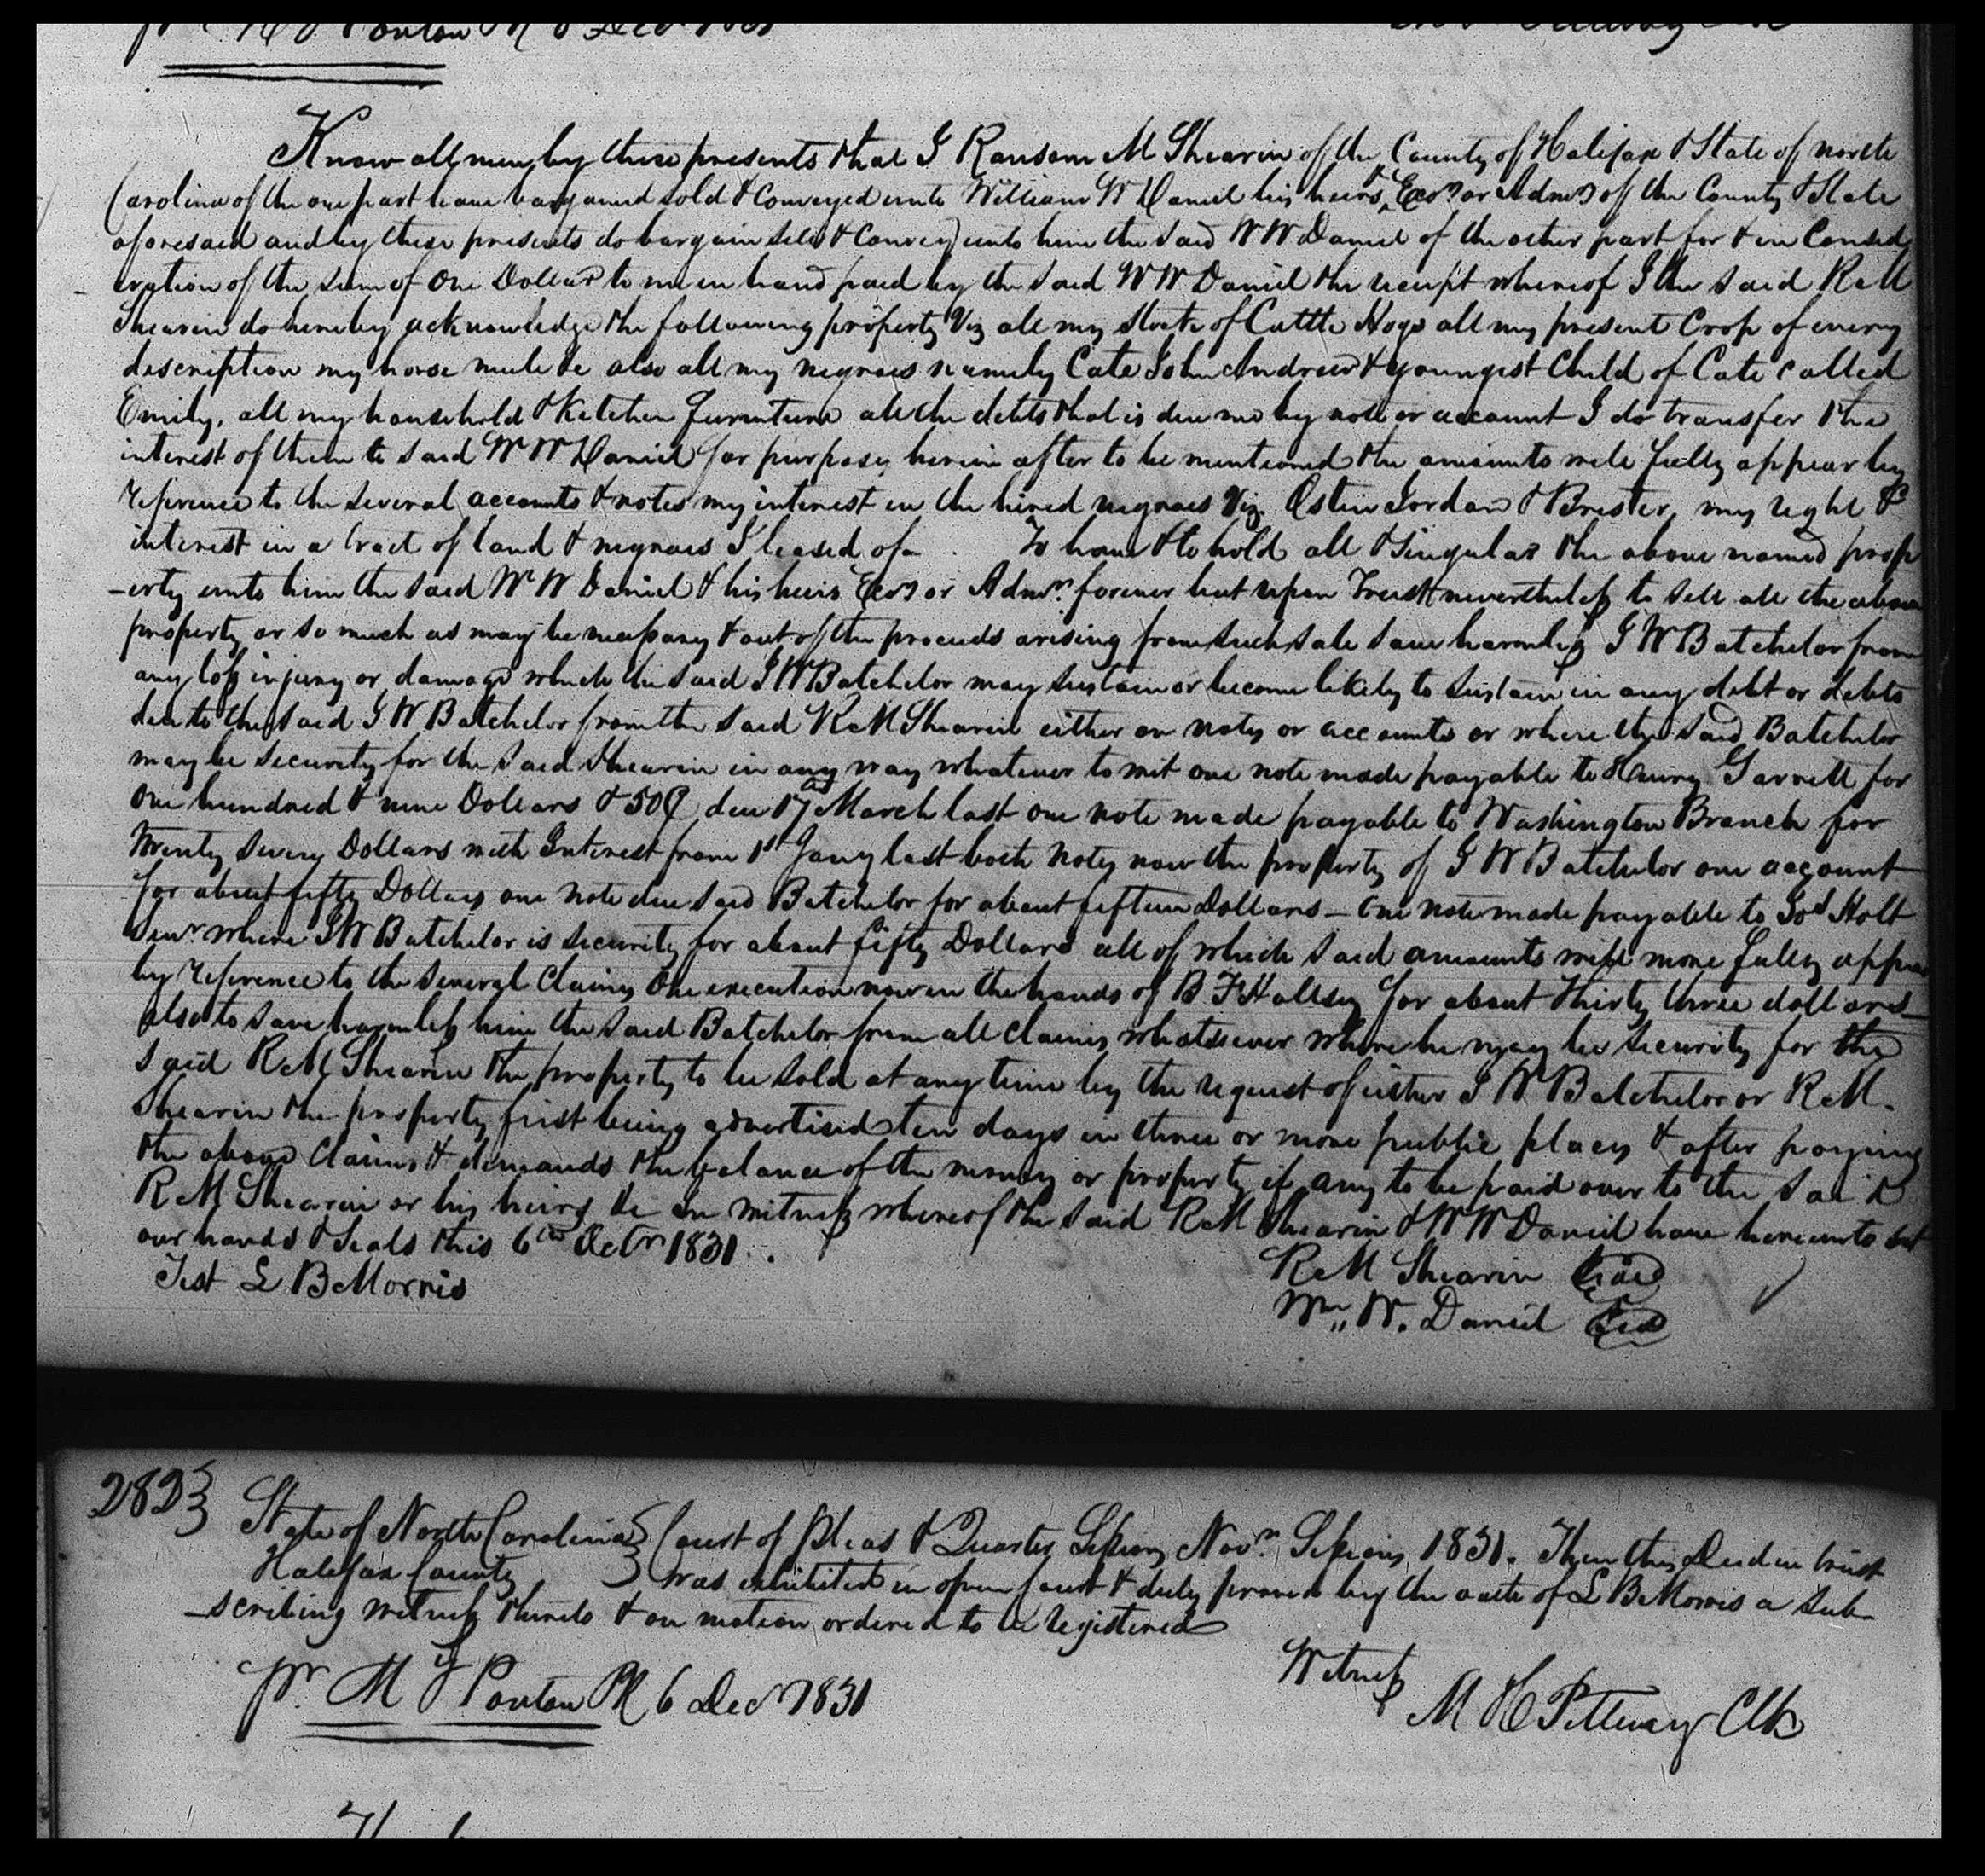 Ponton
Know all men by these presents that I Ransom M Shearin of the County of Halifax & State of North
Carolina of the one part have bargained sold & Conveyed unto William W Daniel his heirs, Exrs or Admrs of the County & State
aforesaid and by these presents do bargain sell & Convey unto him the said W W Daniel of the other part for & in Consid
eration of the sum of one Dollar to me in hand paid by the said W W Daniel the receipt whereof I the said R M
Shearin do hereby acknowledge the following property Viz all my Stock of Cattle Hogs all my present Crop of every
description my horse mule &c also all my negroes namely Cate John Andrew & youngest Child of Cate called
Emily, all my household & Kitchen furniture all the debts that is due me by note or account I do transfer the
interest of them to said W W Daniel for purposes herein after to be mentioned the amounts will fully appear by
reference to the several accounts & notes my interest in the hired negroes Viz. Ostin Jordan & Brister, my right &
interest in a tract of land & negroes I leased of - . To have & to hold all & Singular the above named prop
-erty unto him the said W W Daniel & his heirs Exrs or Admrs. forever but upon Trust nevertheless to sell all the above
property or so much as may be necessary & out of the proceeds arising from such sale save harmless J W Batchelor from
any loss injury or damage which the said J W Batchelor may sustain or become likely to sustain in any debt or debts
due to the said J W Batchelor from the said R M Shearin either on notes or accounts or where the said Batchelor
may be security for the said Shearin in any way whatever to wit one note made payable to Henry Garrett for
One hundred & nine Dollars & 50¢ due 17 March last one note made payable to Washington Branch for
Twenty Seven Dollars with Interest from 1st Jany last both notes now the property of J W Batchelor one account
for about fifty Dollars one note due said Batchelor for about fifteen Dollars - One note made payable to Holt
Senr where J W Batchelor is security for about fifty Dollars all of which said amounts will more fully appear
by reference to the several Claims One execution now in the hands of B F Halsey for about thirty three dollars
also to save harmless him the said Batchelor from all Claims whatsoever where he may be security for the
said R M Shearin the property to be sold at any time by the request of either J W Batchelor or R M.
Shearin the property first being advertised ten days in three or more public places & after paying
the above Claims & demands the balance of the money or property if any to be paid over to the said
R M Shearin or his heirs &c In witness whereof the said R M Shearin & W W Daniel have hereunto set
our hands & Seals this 6th Octr 1831.
Test L B Morris
R M Shearin Seal
Wm. W. Daniel Seal
2823
State of North Carolina Court of Pleas & Quarter Sessions Novr. Sessions 1831. Then this Deed in trust
Halifax County was exhibited in open Court & duly proven by the oath of L B Morris a sub-
-scribing witness thereto & on motion ordered to be registered
Witness
pr. M J Ponton PR 6 Decr 1831
M H Pettway Clk